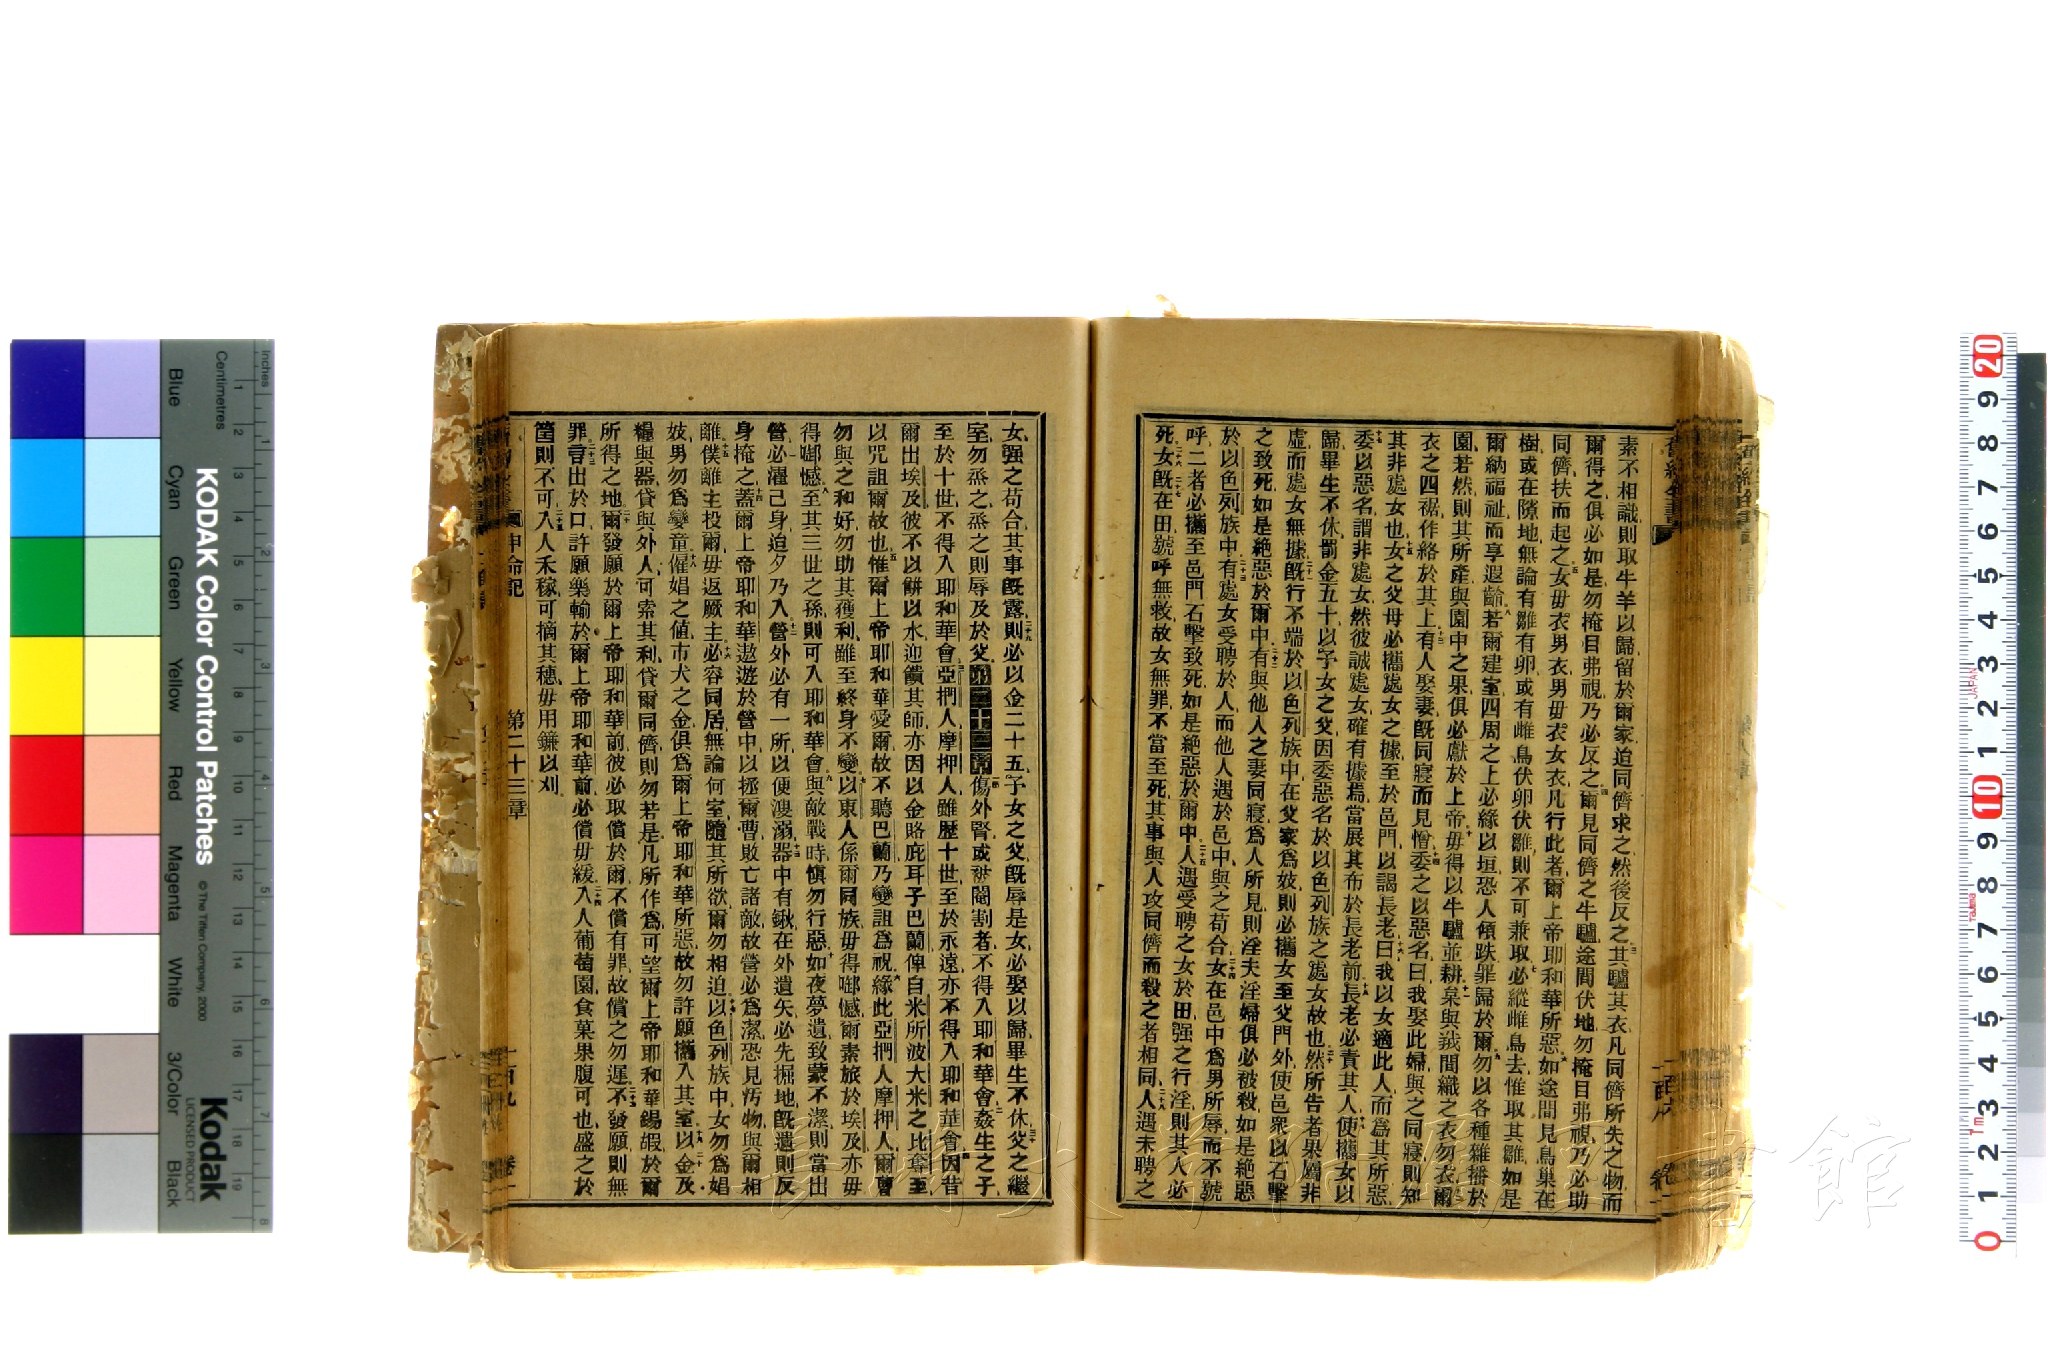 素不相識則取牛羊以歸留於爾家迨同儕求之然後反之其驢其衣凡同儕所失之物而
爾得之俱必如是勿掩目弗視乃必反之爾見同儕之牛驢途間伏地勿掩目弗視乃必助
同儕扶而起之女毋衣男衣男毋衣女衣凡行此者爾上帝耶和華所惡如途間見鳥巢在
樹或在隙地無論有雛有卵或有雌鳥伏卵伏雛則不可兼取必縱雌鳥去惟取其雛如是
爾納福祉而享遐齡若爾建室四周之上必緣以垣恐人傾跌罪歸於爾勿以各種雜播於
園若然則其所產與園中之果俱必獻於上帝毋得以牛驢並耕枲與羢間織之衣勿衣爾
衣之四裾作綌於其上有人娶妻既同寢而見憎委之以惡名曰我娶此婦與之同寢則知
其非處女也女之父母必攜處女之據至於邑門以謁長老曰我以女適此人而爲其所惡
委以惡名謂非處女然彼誠處女確有據焉當展其布於長老前長老必責其人使攜女以
歸畢生不休罰金五十以予女之父因委惡名於以色列族之處女故也然所告者果屬非
虛而處女無據既行不端於以色列族中在父家爲妓則必攜女至父門外使邑衆以石擊
之致死如是絕惡於爾中有與他人之妻同寢爲人所見則淫夫淫婦俱必被殺如是絕惡
於以色列族中有處女受聘於人而他人遇於邑中與之苟合女在邑中爲男所辱而不號
呼二者必攜至邑門石擊致死如是絕惡於爾中人遇受聘之女於田强之行淫則其人必
死女既在田號呼無救故女無罪不當至死其事與人攻同儕而殺之者相同人遇未聘之
女强之苟合其事既露則必以金二十五予女之父既辱是女必娶以歸畢生不休父之繼
室勿烝之烝之則辱及於父第二十三章傷外腎或被閹割者不得入耶和華會姦生之子
至於十世不得入耶和華會亞捫人摩押人雖歷十世至於永遠亦不得入耶和華會因昔
爾出埃及彼不以餅以水迎饋其師亦因以金賂庇耳子巴蘭俾自米所波大米之比奪至
以咒詛爾故也惟爾上帝耶和華愛爾故不聽巴蘭乃變詛爲祝緣此亞捫人摩押人爾曹
勿與之和好勿助其獲利雖至終身不變以東人係爾同族毋得啣憾爾素旅於埃及亦毋
得啣憾至其三世之孫則可入耶和華會與敵戰時愼勿行惡如夜夢遺致蒙不潔則當出
營必濯己身迨夕乃入營外必有一所以便溲溺器中有鍬在外遺矢必先掘地既遺則反
身掩之蓋爾上帝耶和華遨遊於營中以拯爾曹敗亡諸敵故營必爲潔恐見汚物與爾相
離僕離主投爾毋返厥主必容同居無論何室隨其所欲爾勿相迫以色列族中女勿爲娼
妓男勿爲孌童僱娼之值市犬之金俱爲爾上帝耶和華所惡故勿許願攜入其室以金及
糧與器貸與外人可索其利貸爾同儕則勿若是凡所作爲可望爾上帝耶和華錫嘏於爾
所得之地爾發願於爾上帝耶和華前彼必取償於爾不償有罪故償之勿遲不發願則無
罪言出於口許願樂輸於爾上帝耶和華前必償毋緩入人葡萄園食菓果腹可也盛之於
筐則不可入人禾稼可摘其穗毋用鐮以刈
申命記 第二十三章 一百九
KODAK Color Control Patches
© The Tiffen Company, 2000
Kodak
LICENSED PRODUCT
Inches
Centimetres
Blue
Cyan
Green
Yellow
Red
Magenta
White
3/Color
Black
JAPAN